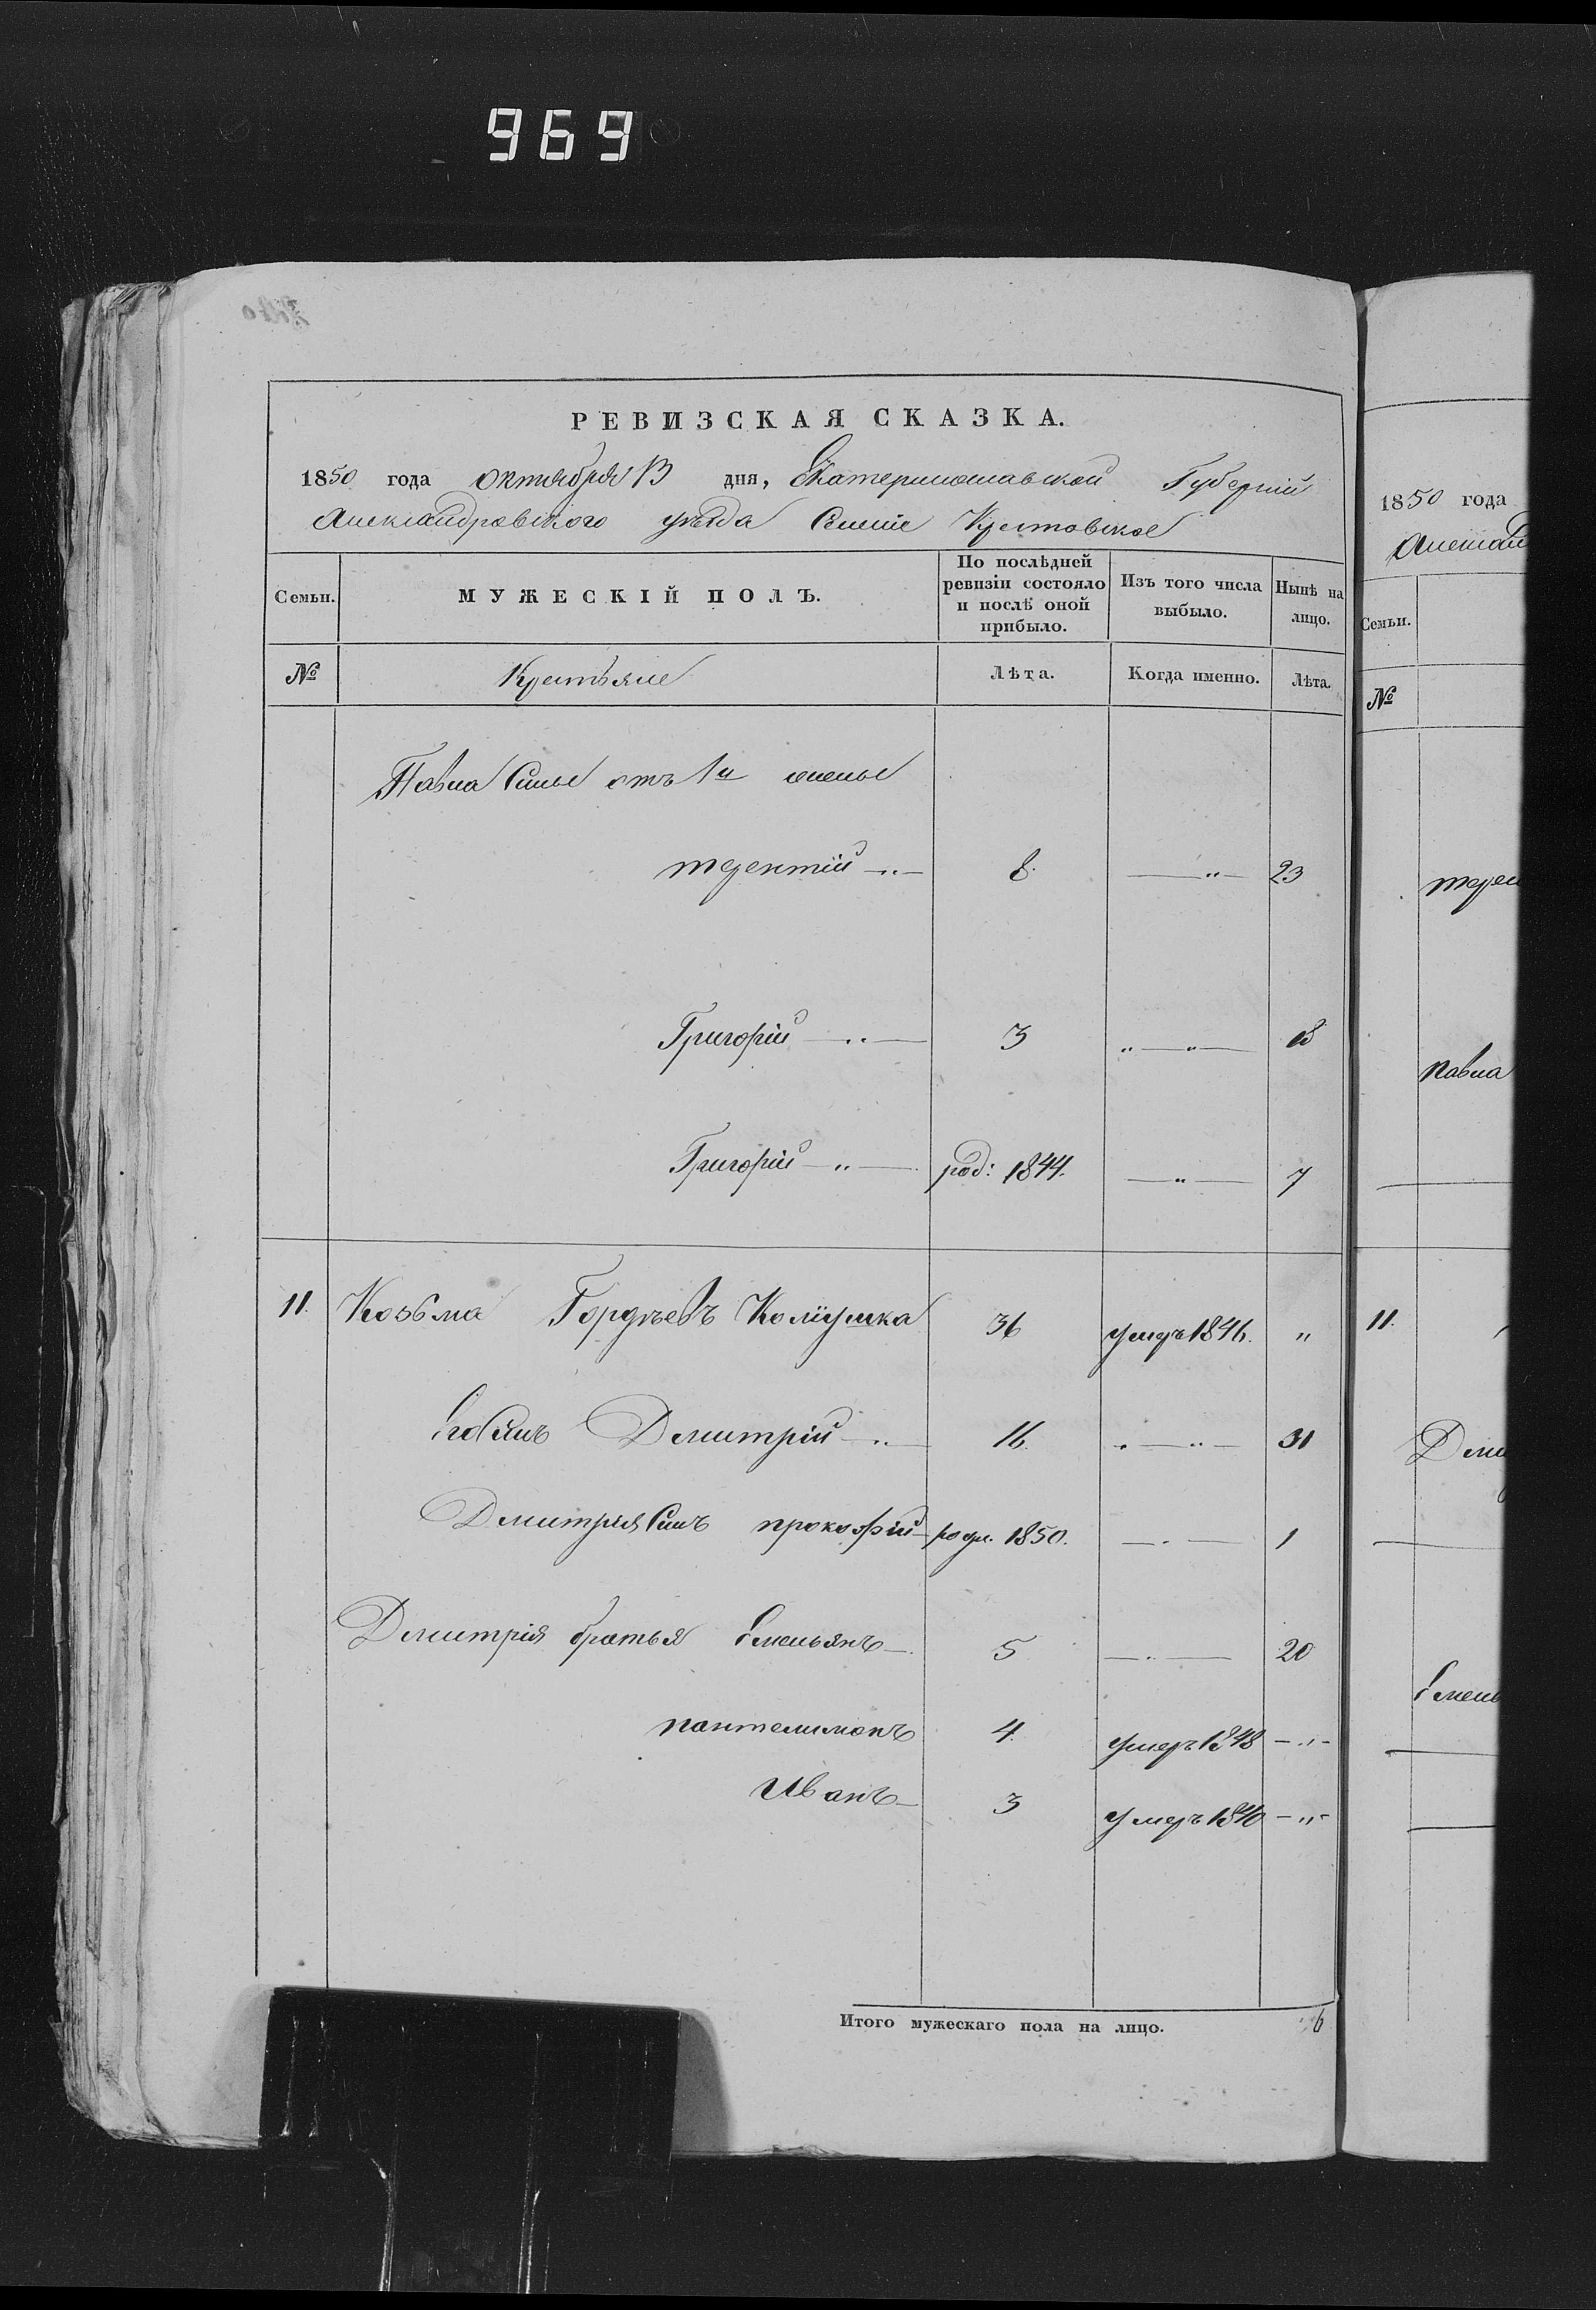 969
РЕВИЗСКАЯ СКАЗКА.
1850 года октября 13 дня, Екатеринославской Губерніи
Александровского уезда Селеніе Крестовское
Семьи. МУЖЕСКІЙ ПОЛЪ. По послѣдней ревизіи состояло и послѣ оной прибыло. Изъ того числа выбыло. Нынѣ на лицо.
№ Крестьяне Лѣта. Когда именно. Лѣта.
Павла Сины отъ 1й жены
терентій —"— 8. —"— 23
Григорій —"— 3 "—"— 18
Григорій —"— род: 1844. —"— 7
11. Козьма Гордѣевъ 36 умеръ 1846. "
Его Синъ Дмитрій —"— 16. "—"— 31
Дмитрія Синъ прокофій — родил. 1850. —"— 1
Дмитрія братья Емельянъ — 5 —"— 20
пантелимонъ 4. умеръ 1848 —"—
Иванъ — 3 умеръ 1840 —"—
Итого мужескаго пола на лицо. 6
1850 года
Алексан
Семьи.
№
терен
павла
11.
Дми
Емель